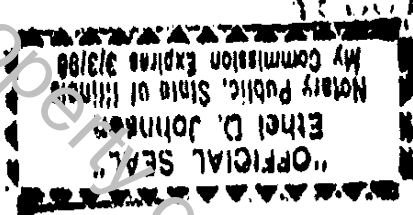 "OFFICIAL SEAL"
Ethel D. Johnson
Notary Public, State of Illinois
My Commission Expires 3/3/98
Property